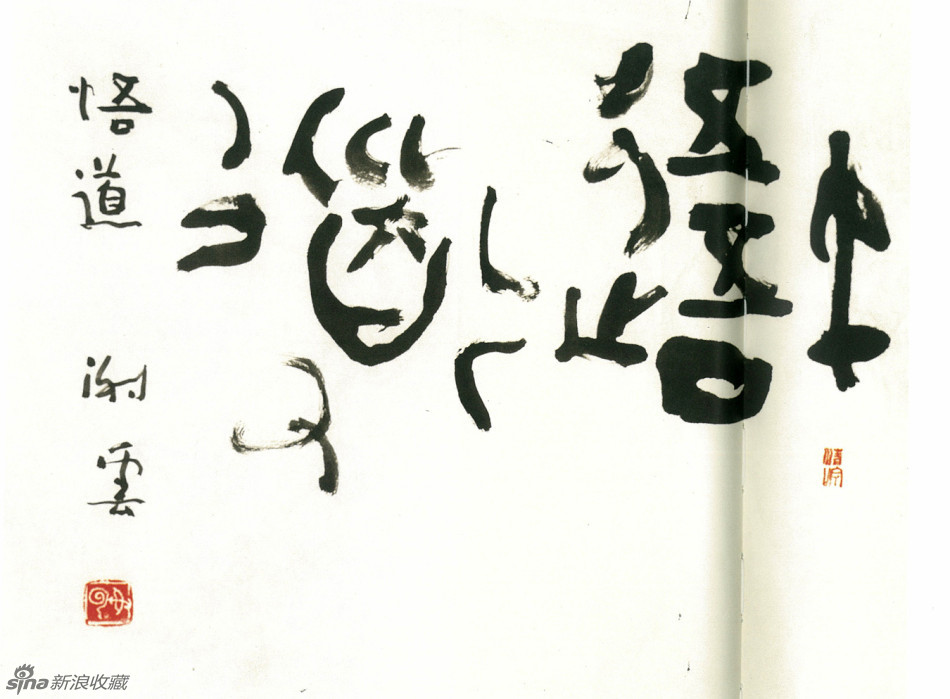 悟道
悟道 谢雲
sina新浪收藏